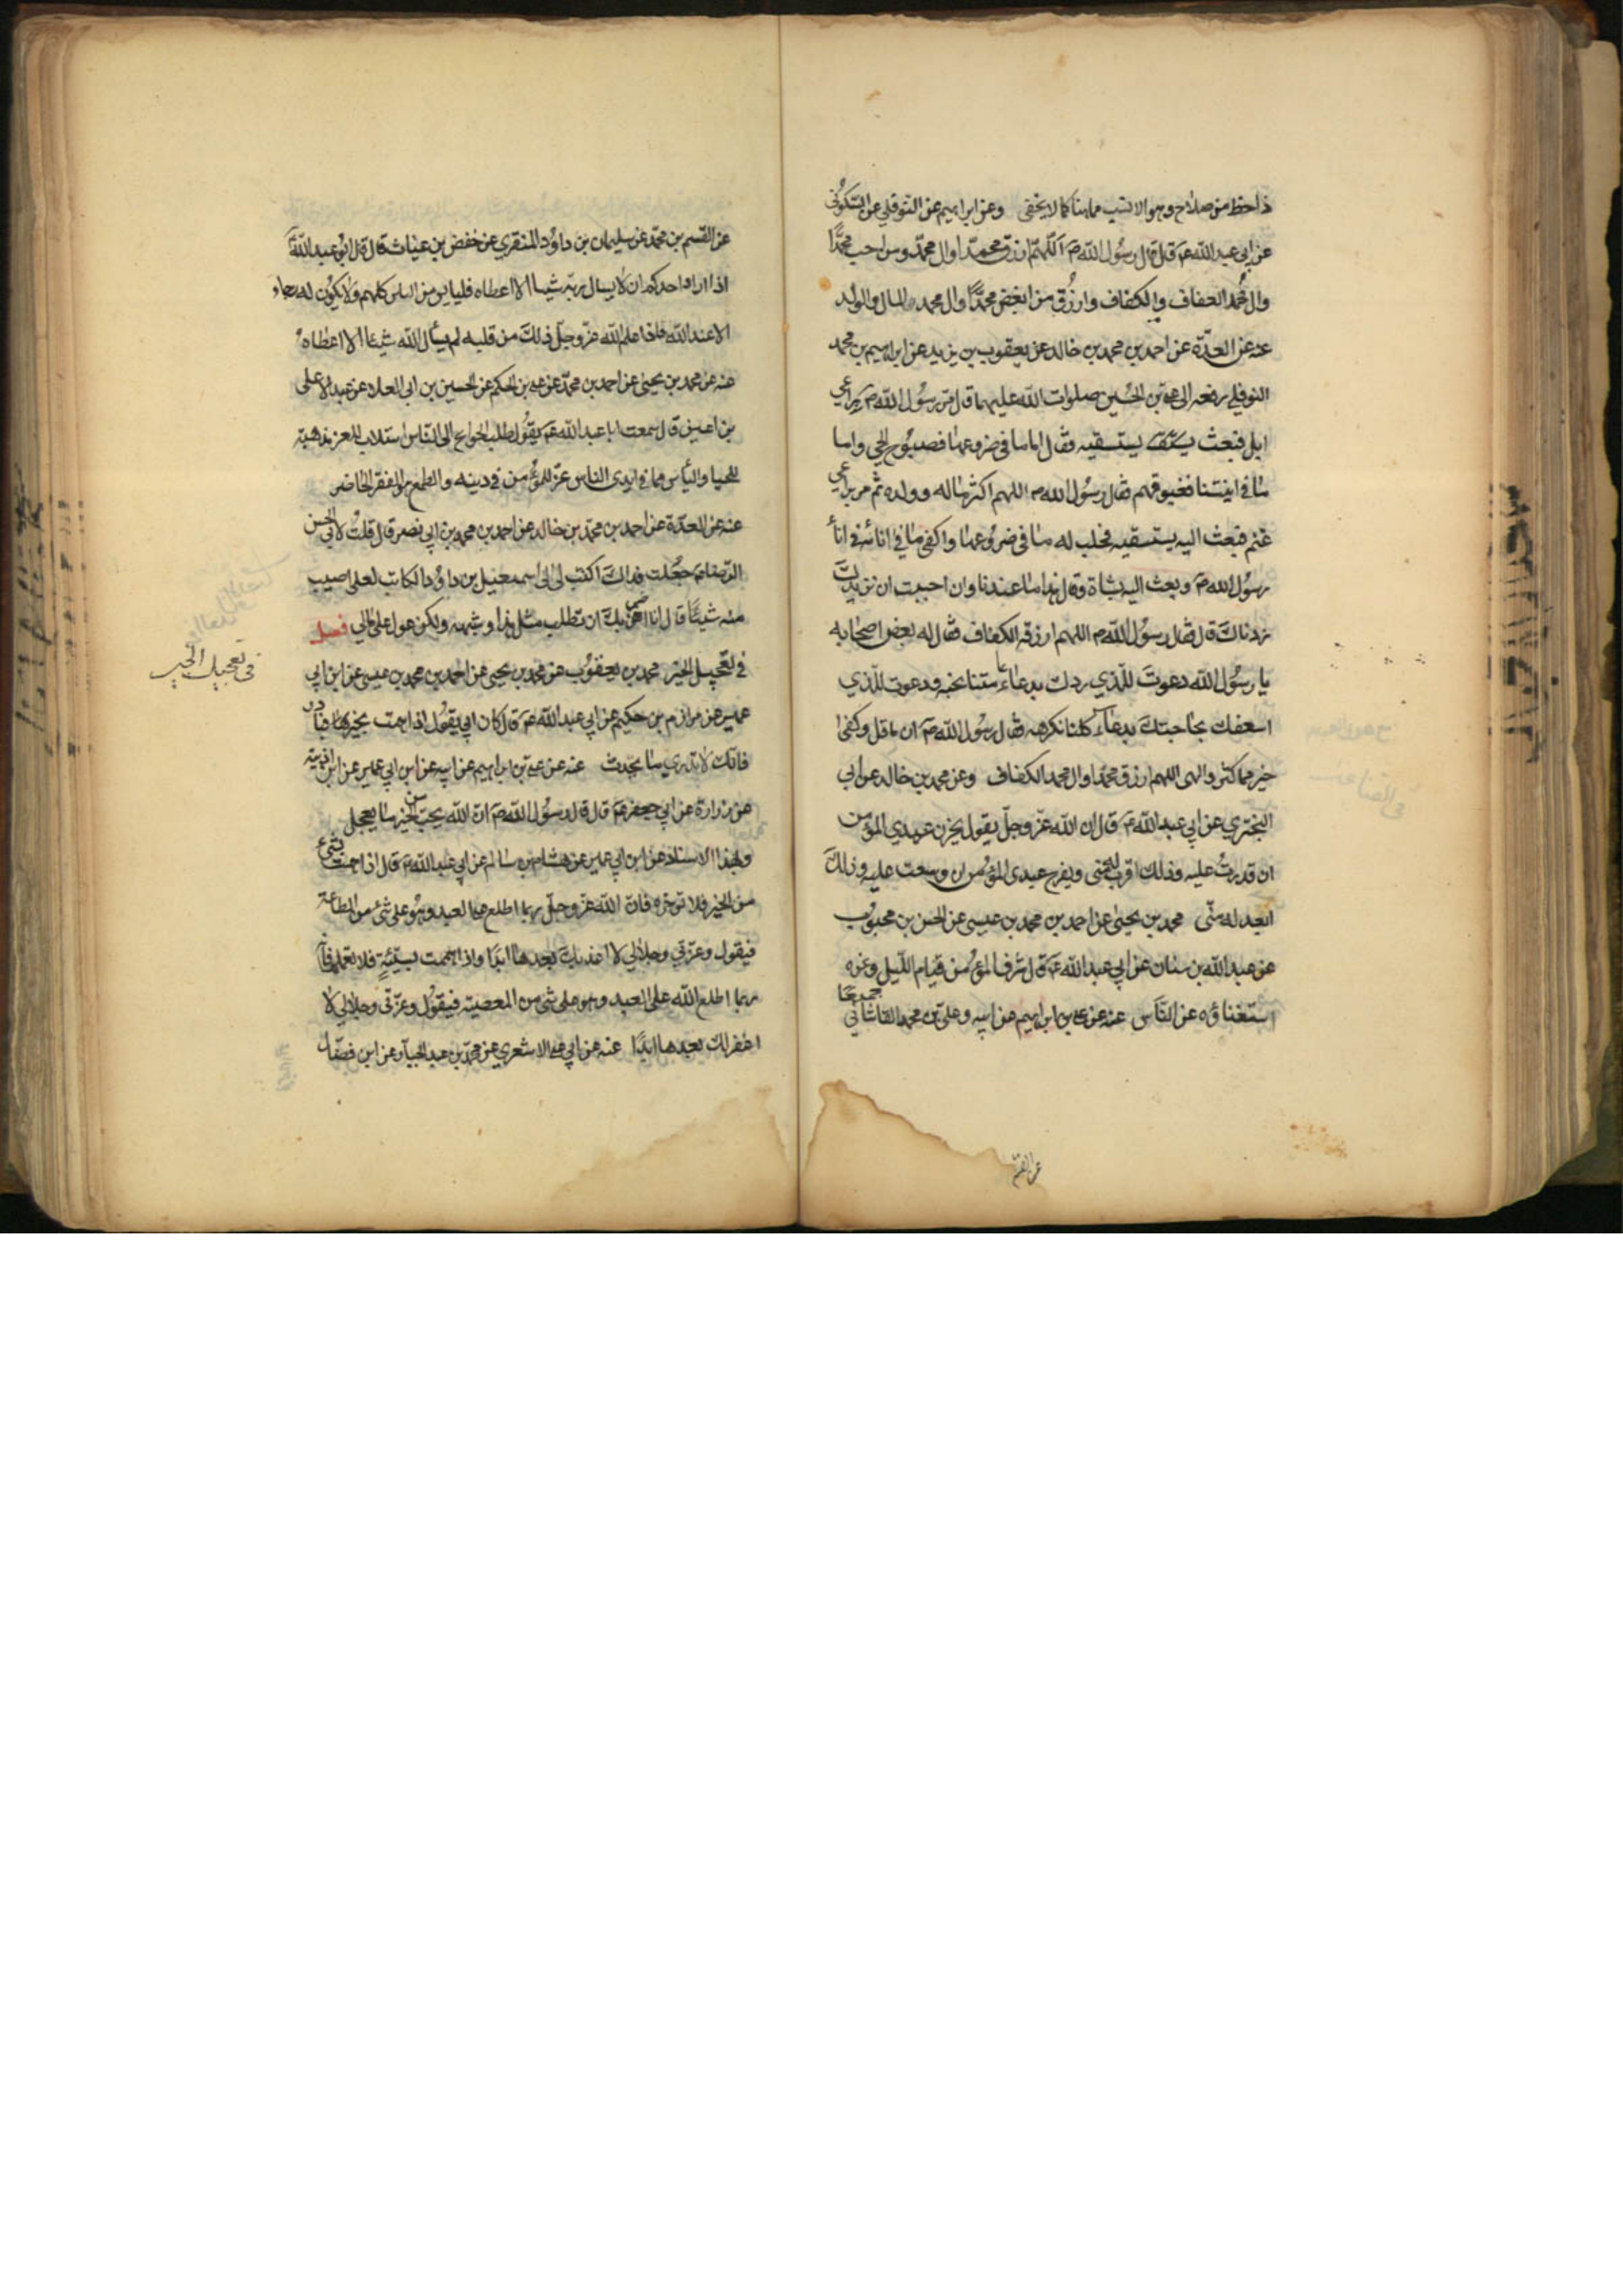 ذا حظ من صلاح وهو الانسب مما هنا كما لا يخفى وعن ابراهيم عن النوفلي عن السكوني
عن ابي عبد الله ع قال قال رسول الله ص اللهم ارزق محمدا وال محمد ومن احب محمدا
وال محمد العفاف والكفاف وارزق من ابغض محمدا وال محمد المال والولد
عنه عن العدة عن احمد بن محمد بن خالد عن يعقوب بن يزيد عن ابراهيم بن محمد
النوفلي رفعه الى علي بن الحسين صلوات الله عليهما قال مر رسول الله ص براعي
ابل فبعث يستسقيه فقال اما ما في ضروعها فصبوح الحي واما
ما في انيتنا فغبوقهم فقال رسول الله ص اللهم اكثر ماله وولده ثم مر براعي
غنم فبعث اليه يستسقيه فحلب له ما في ضروعها واكفى ما في انائه في اناء
رسول الله ص وبعث اليه بشاة وقال هذا ما عندنا وان احببت ان نزيدك
زدناك قال فقال رسول الله ص اللهم ارزقه الكفاف فقال له بعض اصحابه
يا رسول الله دعوت للذي ردك بدعاء عامتنا نحبه ودعوت للذي
اسعفك بحاجتك بدعاء كلنا نكرهه فقال رسول الله ص ان ما قل وكفى
خير مما كثر والهى اللهم ارزق محمدا وال محمد الكفاف وعن محمد بن خالد عن ابي
البختري عن ابي عبد الله ع قال ان الله عز وجل يقول يحزن عبدي المؤمن
ان قدرت عليه وذلك اقرب له مني ويفرح عبدي المؤمن ان وسعت عليه وذلك
ابعد له مني محمد بن يحيى عن احمد بن محمد بن عيسى عن الحسن بن محبوب
عن عبد الله بن سنان عن ابي عبد الله ع قال شرف المؤمن قيام الليل وعزه
استغناؤه عن الناس عنه عن علي بن ابراهيم عن ابيه وعلي بن محمد القاشاني جميعا
عن القسم
عن القسم بن محمد عن سليمان بن داود المنقري عن حفص بن غياث قال قال ابو عبد الله ع
اذا اراد احدكم ان لا يسال ربه شيئا الا اعطاه فليايس من الناس كلهم ولا يكون له رجاء
الا عند الله فاذا علم الله عز وجل ذلك من قلبه لم يسأل الله شيئا الا اعطاه
عنه عن محمد بن يحيى عن احمد بن محمد عن علي بن الحكم عن الحسين بن ابي العلاء عن عبد الاعلى
بن اعين قال سمعت ابا عبد الله ع يقول طلب الحوائج الى الناس استلاب للعز مذهبة
للحيا والياس مما في ايدي الناس عز للمؤمن في دينه والطمع هو الفقر الحاضر
عنه عن العدة عن احمد بن محمد بن خالد عن احمد بن محمد بن ابي نصر قال قلت لابي الحسن
الرضا ع جعلت فداك اكتب لي الى اسمعيل بن داود الكاتب لعلي اصيب
منه شيئا قال انا اضن بك ان تطلب مثل هذا وشبهه ولكن عول على مالي فصل
في تعجيل الخير محمد بن يعقوب عن محمد بن يحيى عن احمد بن محمد بن عيسى عن ابن ابي
عمير عن مرازم بن حكيم عن ابي عبد الله ع قال كان ابي يقول اذا هممت بخير فبادر
فانك لا تدري ما يحدث عنه عن علي بن ابراهيم عن ابيه عن ابن ابي عمير عن ابن اذينة
عن زرارة عن ابي جعفر ع قال قال رسول الله ص ان الله يحب من الخير ما يعجل
وبهذا الاسناد عن ابن ابي عمير عن هشام بن سالم عن ابي عبد الله ع قال اذا هممت بشيء
من الخير فلا تؤخره فان الله عز وجل ربما اطلع على العبد وهو على شيء من الطاعة
فيقول وعزتي وجلالي لا اعذبك بعدها ابدا واذا هممت بسيئة فلا تعملها فانه
ربما اطلع الله على العبد وهو على شيء من المعصية فيقول وعزتي وجلالي لا
اغفر لك بعدها ابدا عنه عن ابي علي الاشعري عن محمد بن عبد الجبار عن ابن فضال
في تعجيل الخير